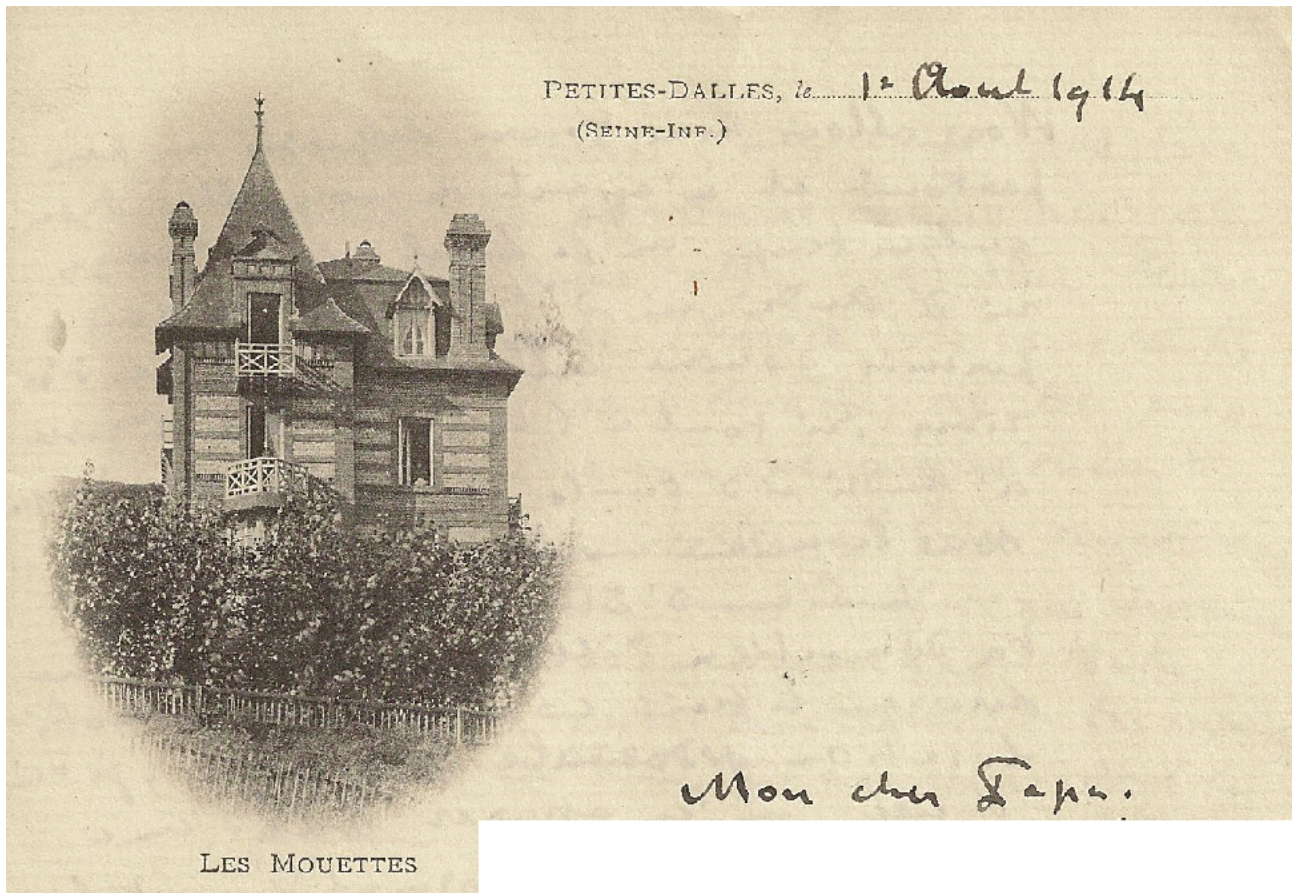 PETITES-DALLES, le 1er Aout 1914
(SEINE-INF.)
Mon cher Papa.
LES MOUETTES